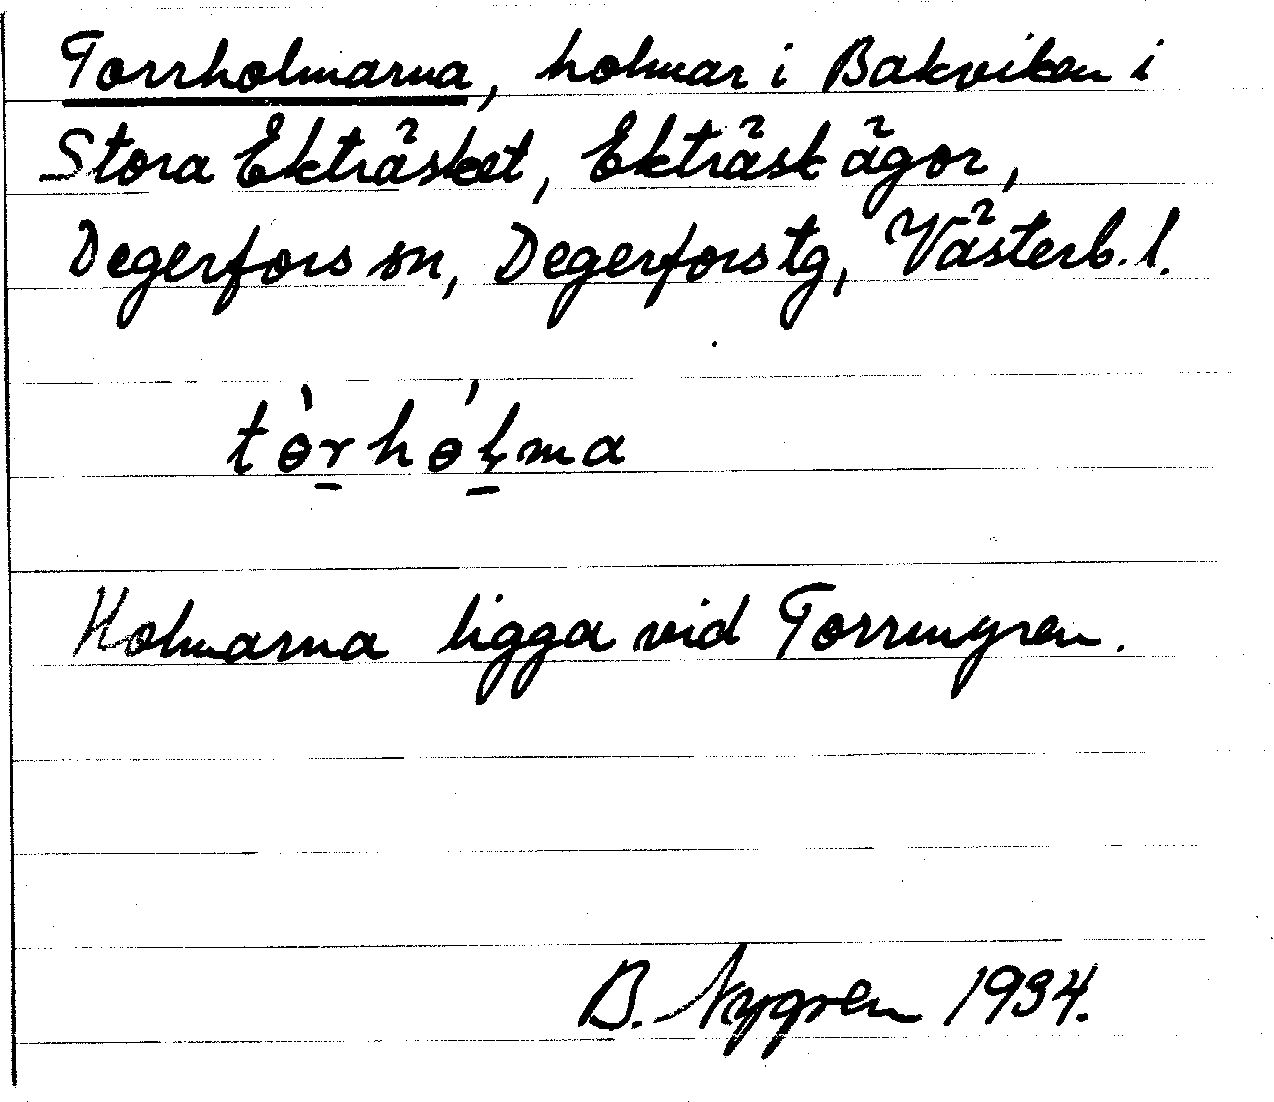 Torrholmarna, holmar i Bakviken i
Stora Ekträsket, Ekträsk ägor,
Degerfors sn, Degerfors tg, Västerb. l.
tò̱rhó̱lma
Holmarna ligga vid Torrmyren.
B. Nygren 1934.